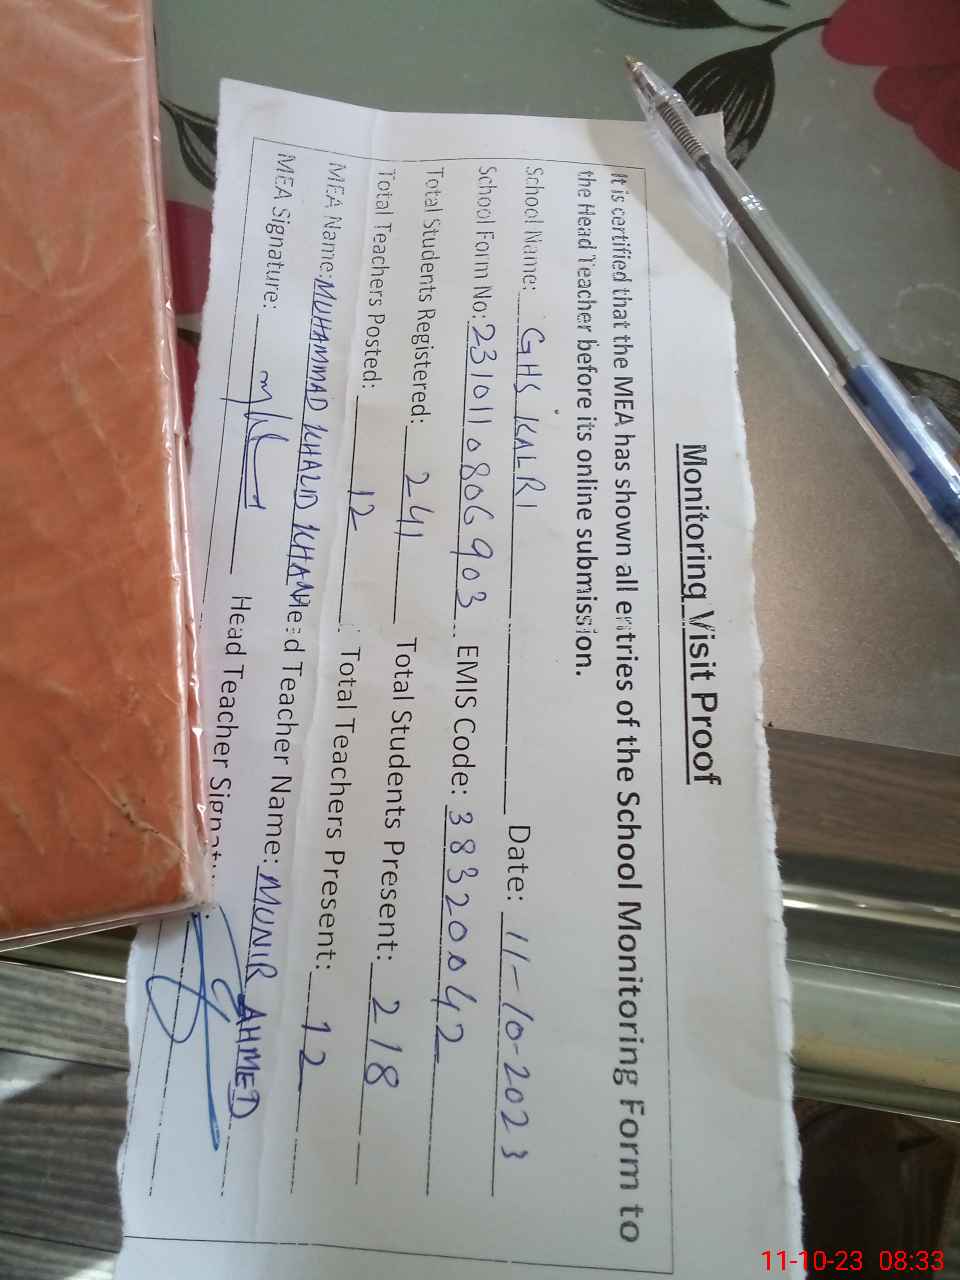 Monitoring Visit Proof
It is certified that the MEA has shown all entries of the School Monitoring Form to
the Head Teacher before its online submission.
School Name: GHS KALRI Date: 11-10-2023
School Form No: 2310110806903 EMIS Code: 38320042
Total Students Registered: 241 Total Students Present: 218
Total Teachers Posted: 12 Total Teachers Present: 12
MEA Name: MUHAMMAD KHALID KHAN Head Teacher Name: MUNIR AHMED
MEA Signature: Head Teacher Signatu
11-10-23 08:33